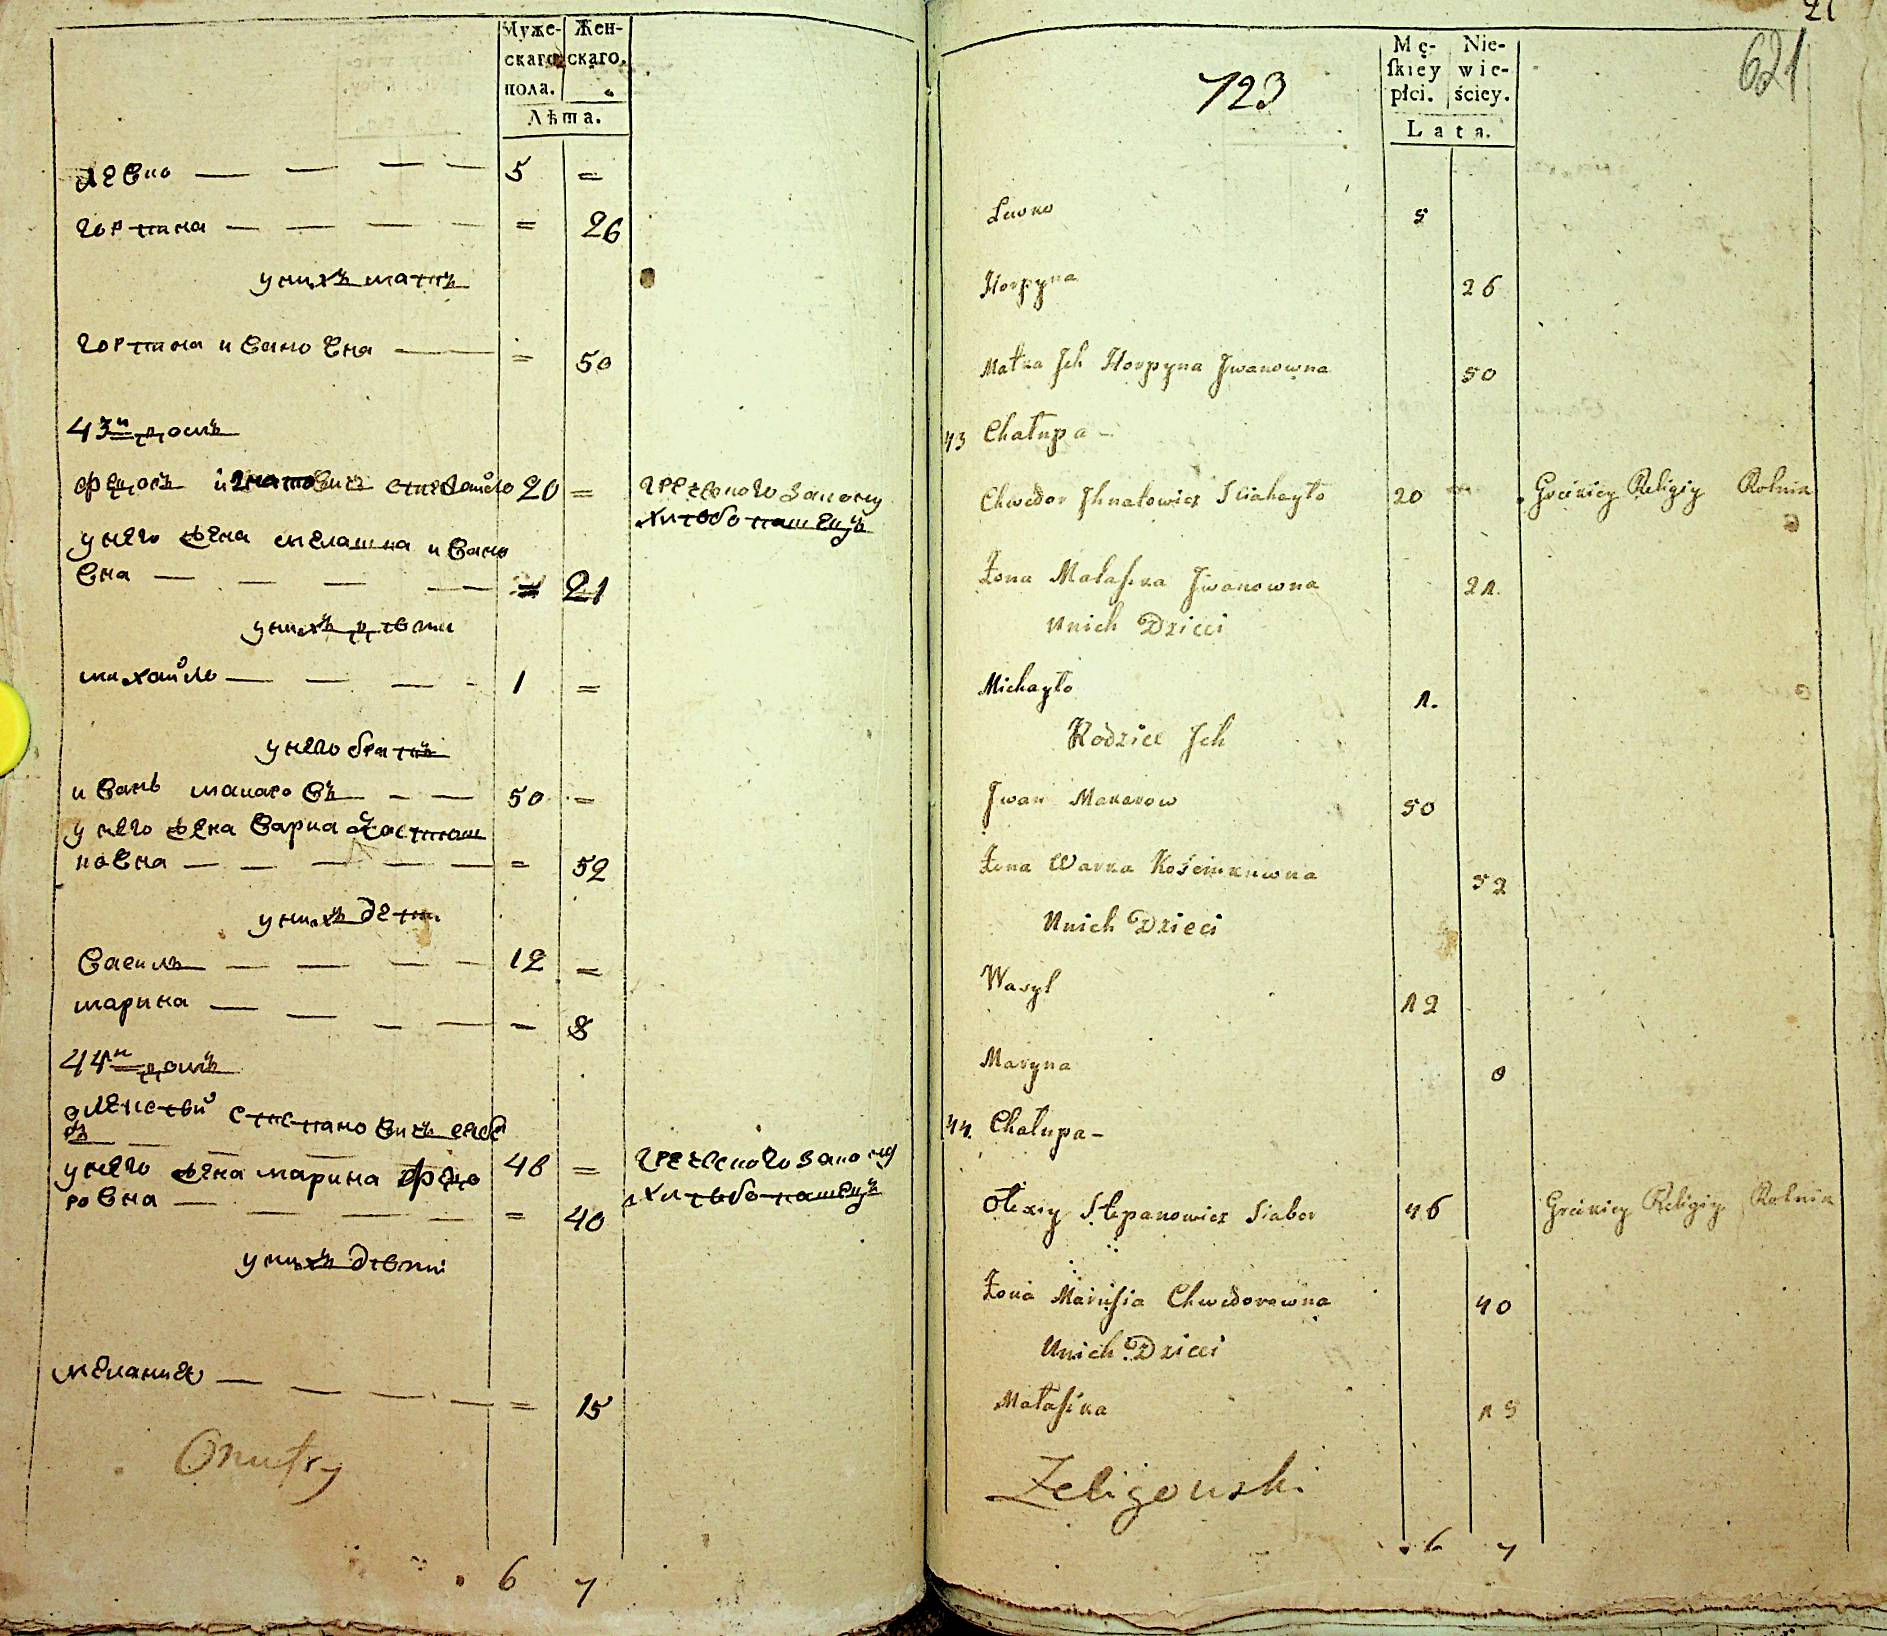 Муже- Жен-
скаго скаго.
пола.
Лѣта.
левко 5 =
горпина = 26
у нихъ мать
горпина ивановна = 50
43й домъ
федоръ игнатовичъ 20 =
греческого закону
хлѣбопашецъ
у него жена мелашка ивано
вна = 21
у нихъ дѣти
михайло 1 =
у него братъ
иванъ макаровъ 50 =
у него жена варка
новна = 52
у нихъ дети
василь 12 =
марина = 8
44й домъ
олексѣй степановичъ сябр
ъ
у него жена марина федо 46 =
греческого закону
хлѣбопашецъ
ровна = 40
у нихъ дѣти
мелания = 15
Onufry
6 7
21
621
723
Mę- Nie-
skiey wie-
płci. ściey.
Lata.
Lewko 5
Horpyna 26
Matka Jch Horpyna Jwanowna 50
43 Chałupa –
Chwedor Jhnatowicz 20 Greckiey Religiy Rolnik
Żona Małaszka Jwanowna 21.
Unich Dzieci
Michayło 1.
Rodzice Jch
Jwan Makarow 50
Żona Warka 52
Unich Dzieci
Wasyl 12
Maryna 8
44. Chałupa –
Ołexiy Stepanowicz Siabor 46 Greckiey Religiy Rolnik
Żona Marusia Chwedorowna 40
Unich Dzieci
Małaszka 15
Zeligowski
6 7